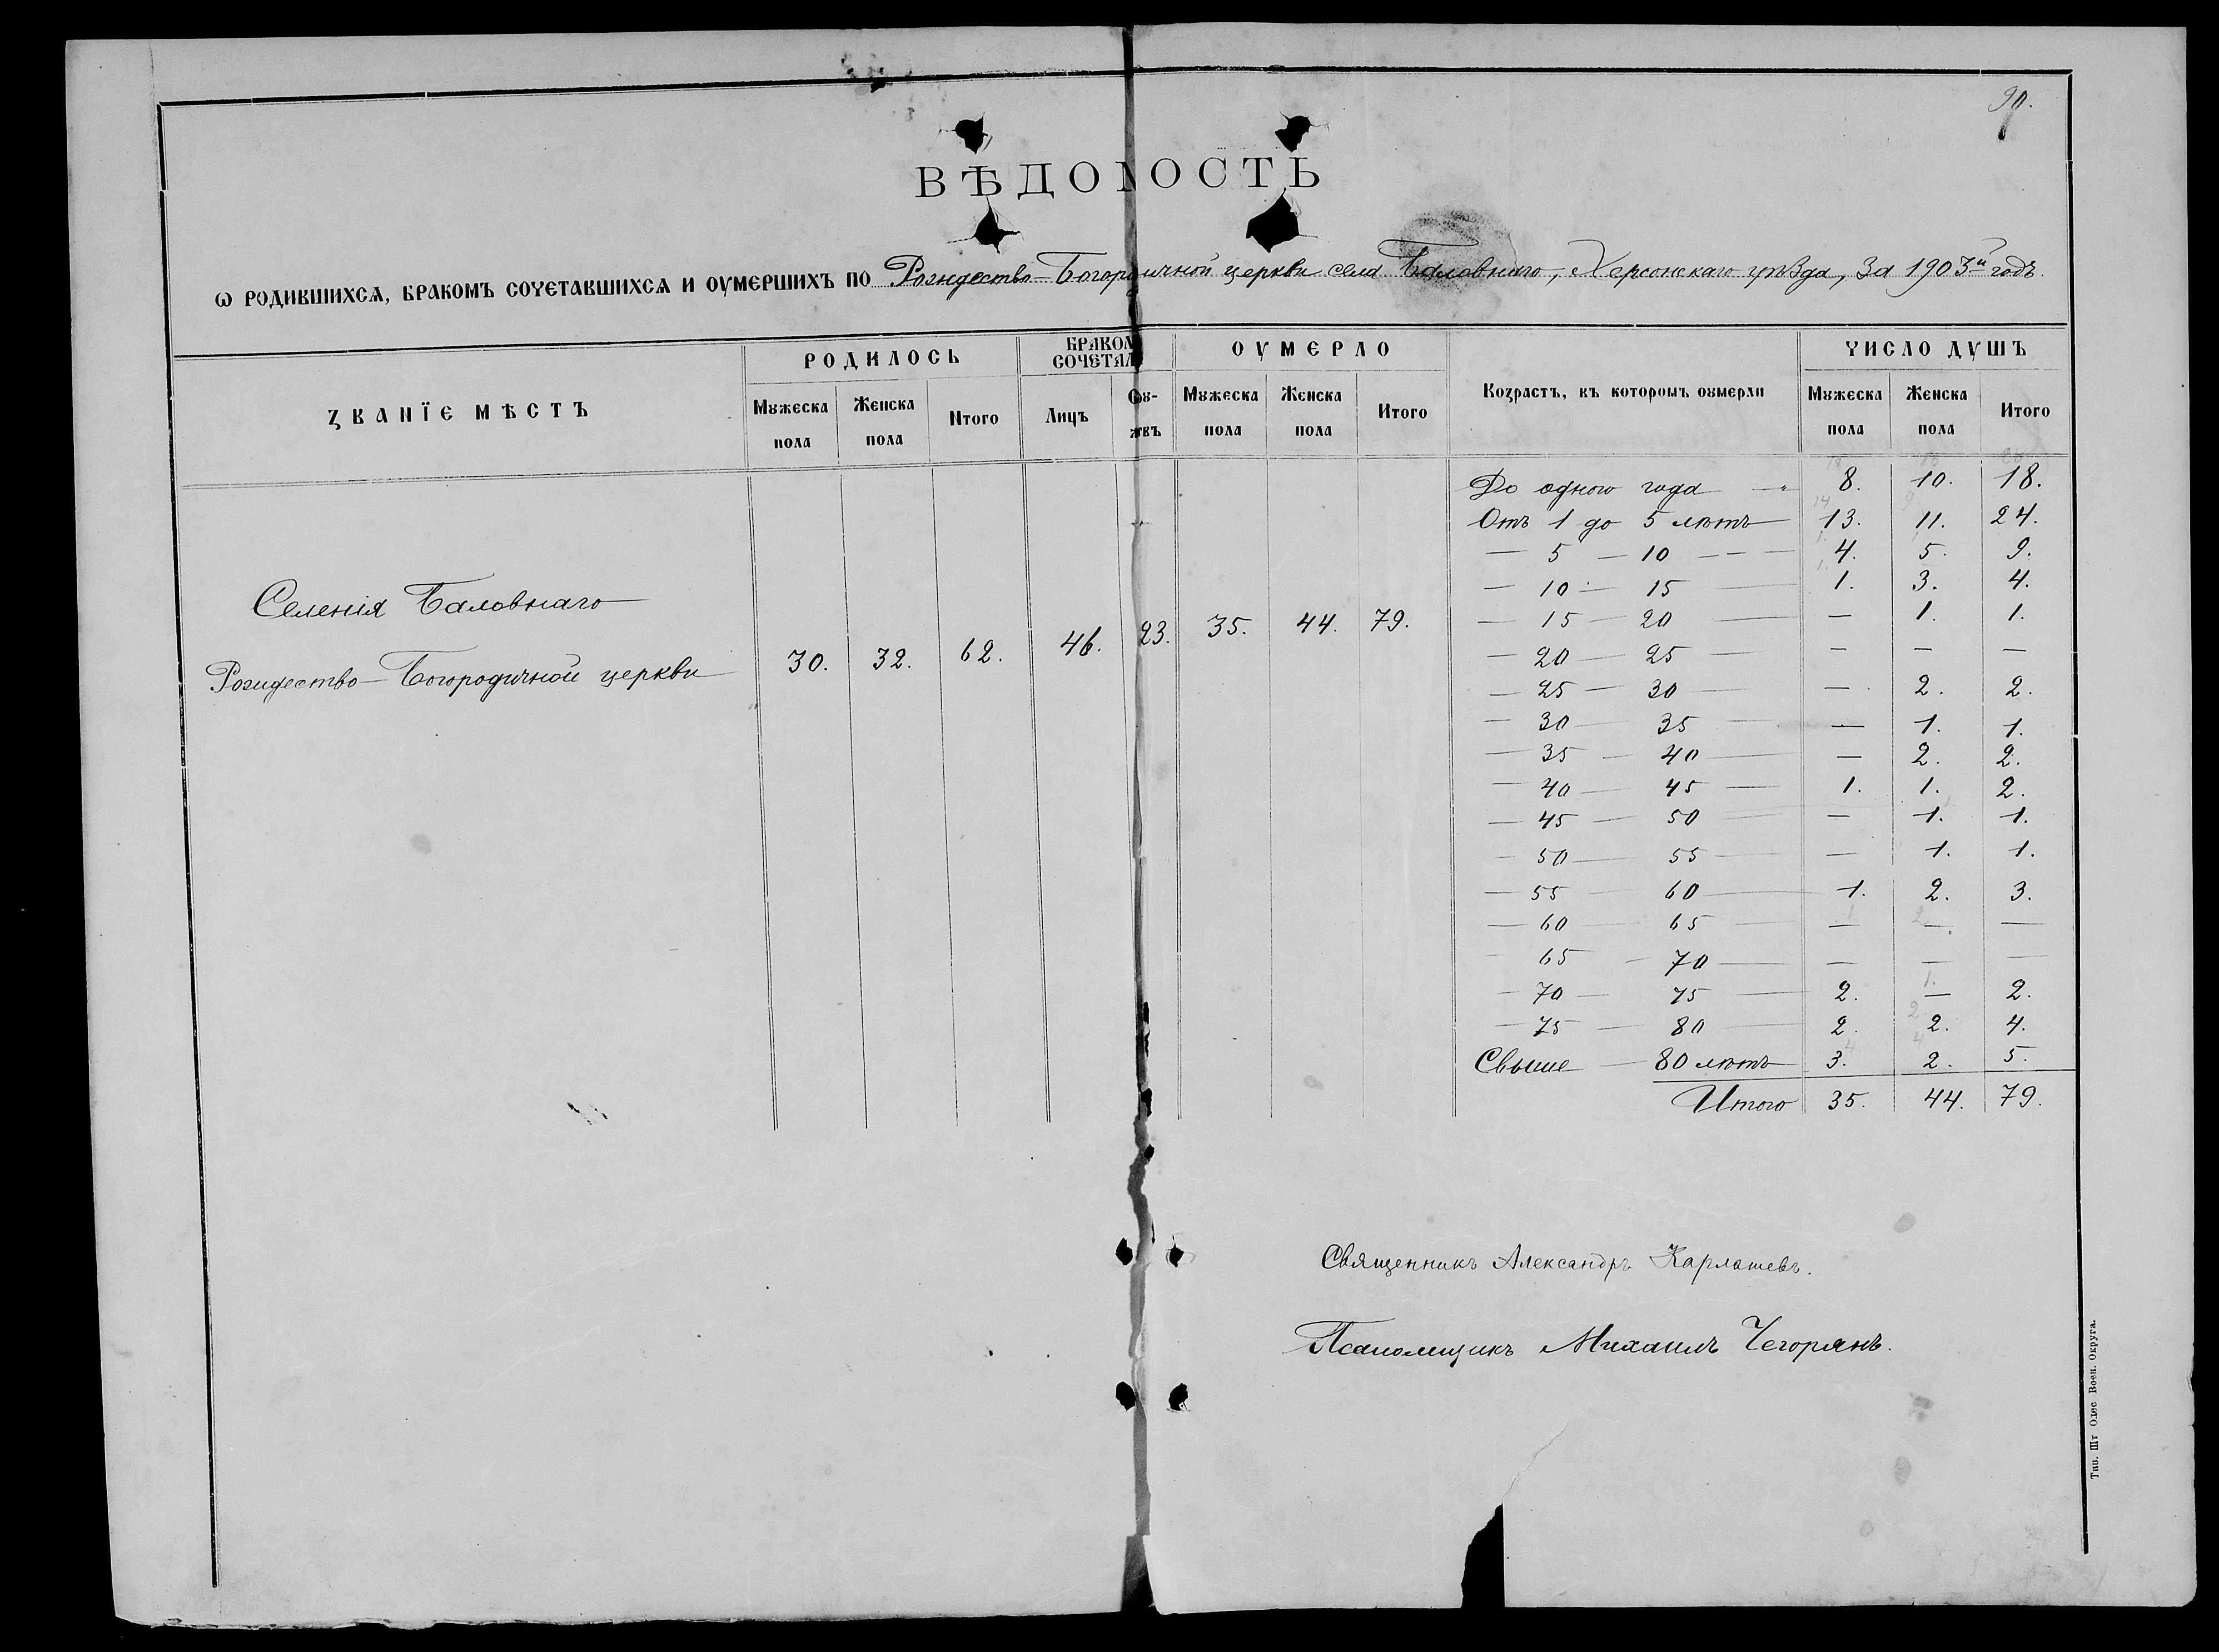 90.
ВѢДОМОСТЬ
Ѡ РОДИВШИХСѦ, БРАКОМЪ СОЧЕТАВШИХСѦ И ОУМЕРШИХЪ ПО Рождество-Богородичной церкви села Баловнаго, Херсонскаго уѣзда, за 1903й годъ
ЗВАНЇЕ МѢСТЪ РОДИЛОСЬ БРАКОМ СОЧЕТАЛ ОУМЕРЛО Возрастъ, въ которомъ оумерли ЧИСЛО ДУШЪ
Мꙋжеска пола Женска пола Итого Лицъ Мꙋжеска пола Женска пола Итого Мꙋжеска пола Женска пола Итого
До одного года — 8. 10. 18.
Отъ 1 до 5 лѣтъ — 13. 11. 24.
— 5 — 10 — — — 4. 5. 9.
— 10 — 15 — 1. 3. 4.
— 15 — 20 — — 1. 1.
— 20 — 25 — — — —
— 25 — 30 — — 2. 2.
— 30 — 35 — — 1. 1.
— 35 — 40 — — 2. 2.
— 40 — 45 — 1. 1. 2.
— 45 — 50 — — 1. 1.
— 50 — 55 — — 1. 1.
— 55 — 60 — 1. 2. 3.
— 60 — 65 — — — —
— 65 — 70 — — — —
— 70 — 75 — 2. — 2.
— 75 — 80 — 2. 2. 4.
Свыше — 80 лѣтъ 3. 2. 5.
Итого 35. 44. 79.
Селенія Баловнаго
Рождество-Богородичной церкви 30. 32. 62. 46. 23. 35. 44. 79.
Священникъ Александръ Карлашевъ.
Псаломщикъ Михаилъ Чегорянъ.
Тип. Шт Одес Воен. Округа.